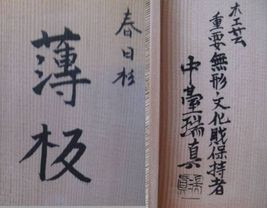 春日杉
薄板
木工芸
重要無形文化財保持者
中臺瑞真
瑞真